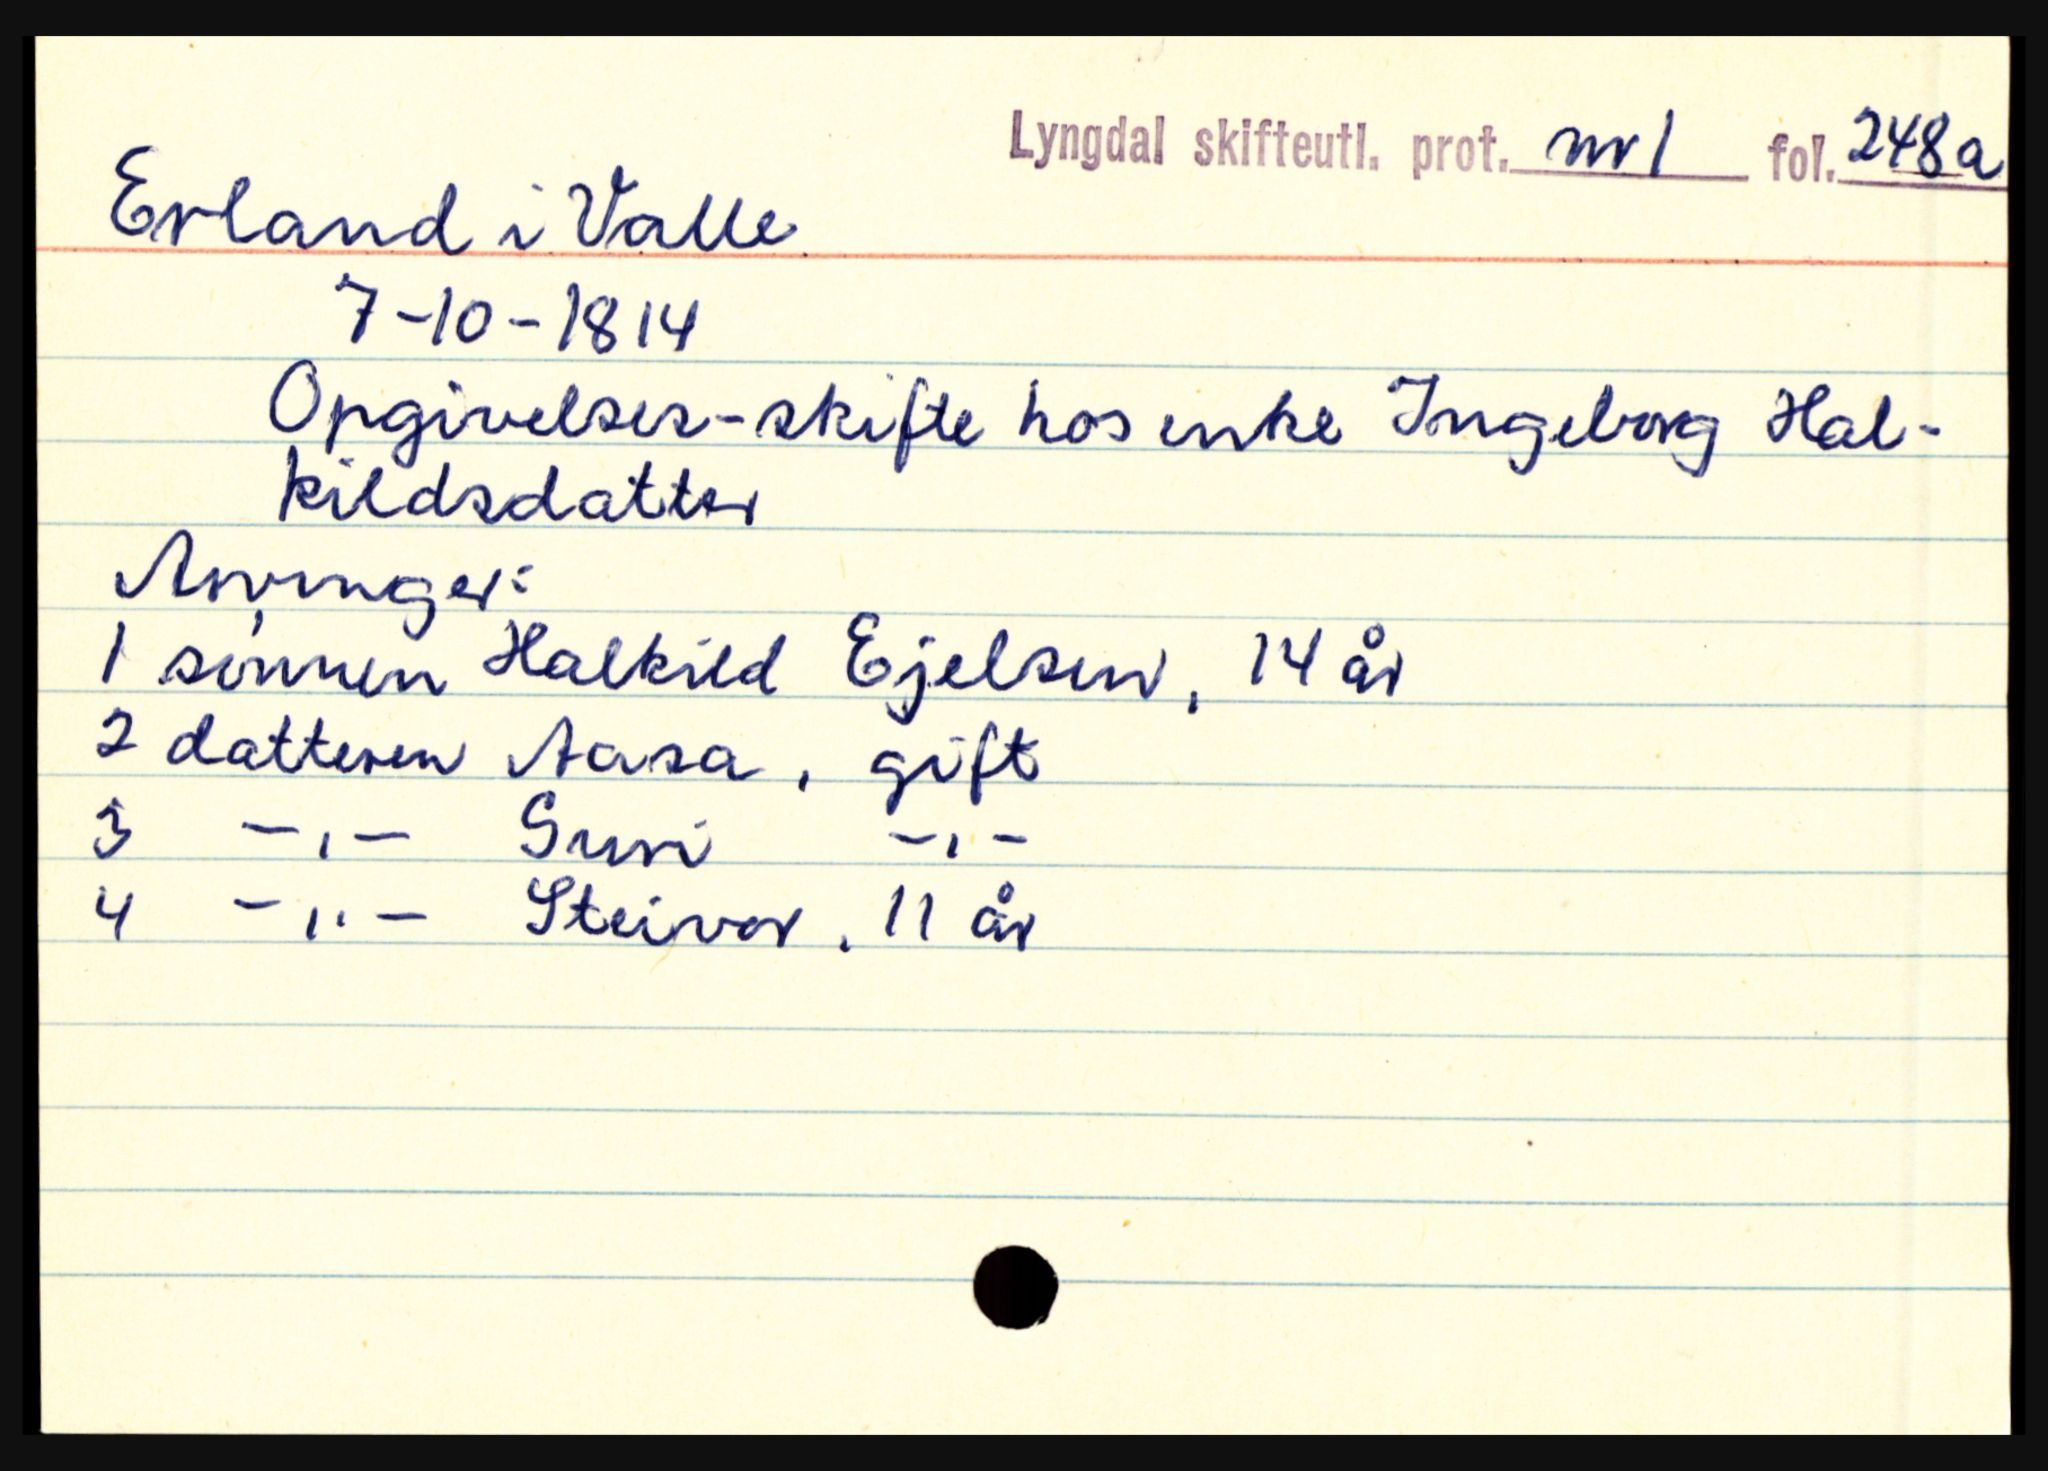 Lyngdal skifteutl. prot. nr 1 fol. 248a
Erland i Valle
7-10-1814
Opgivelses-skifte hos enke Ingeborg Hal-
kildsdatter
Arvinger:
1 sønnen Halkild Ejelsen, 14 år
2 datteren Aasa, gift
3 -,- Guri -,-
4 -,,- Steivor, 11 år